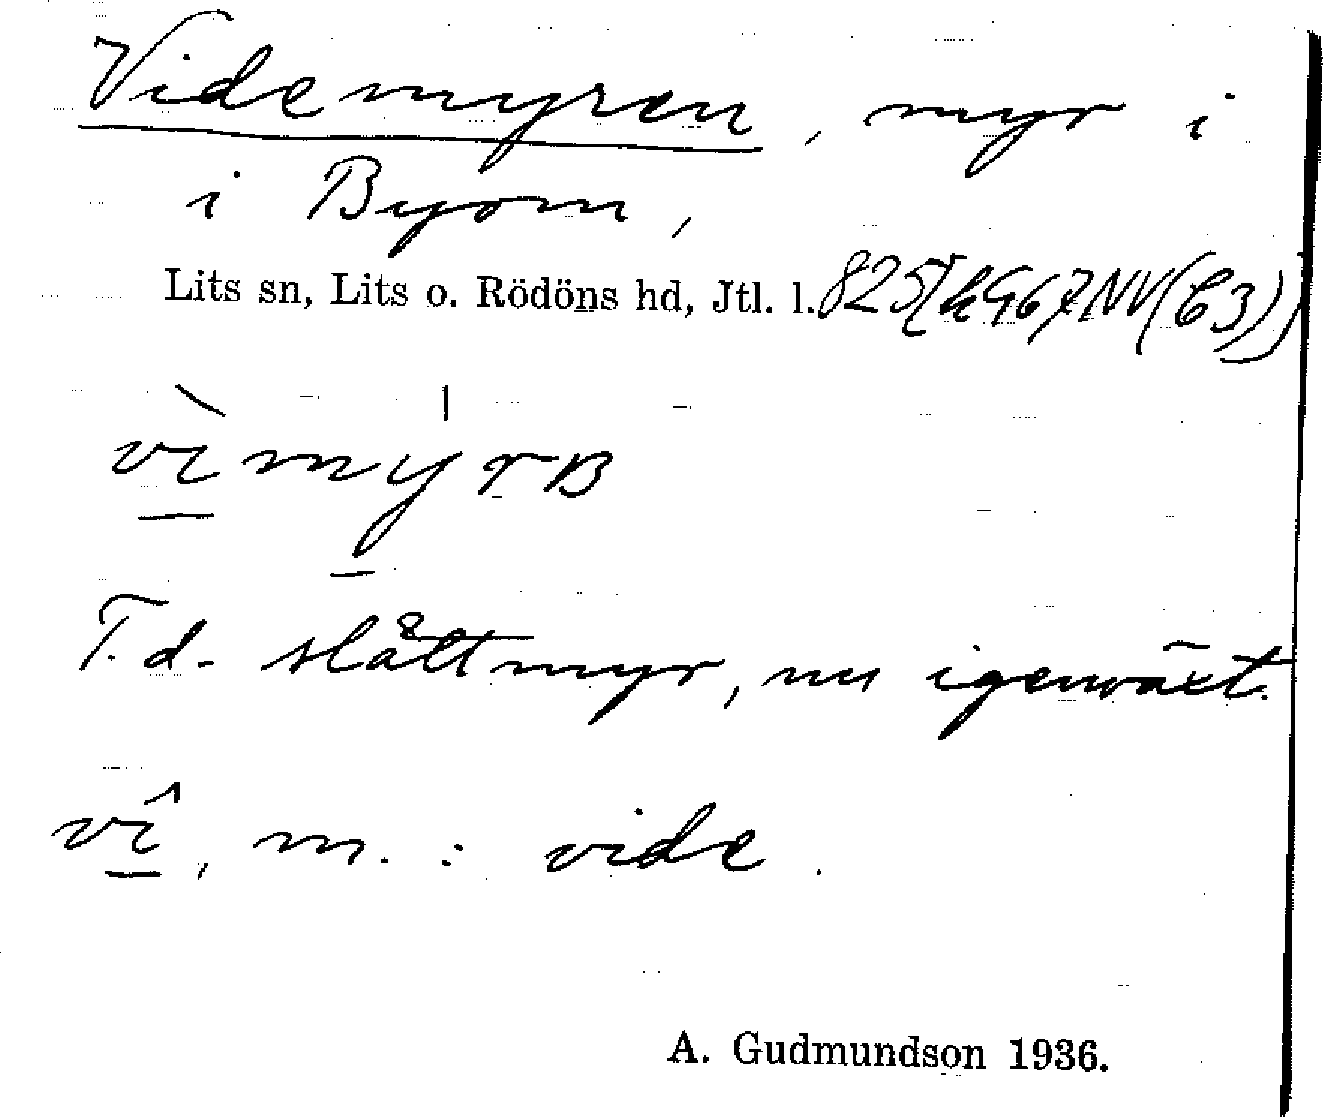 Videmyren, myr i
i Byom,
Lits sn, Lits o. Rödöns hd, Jtl. l. 825
vìmýrB
F.d. slåttmyr, nu igenväxt.
vî, m. : vide.
A. Gudmundson 1936.